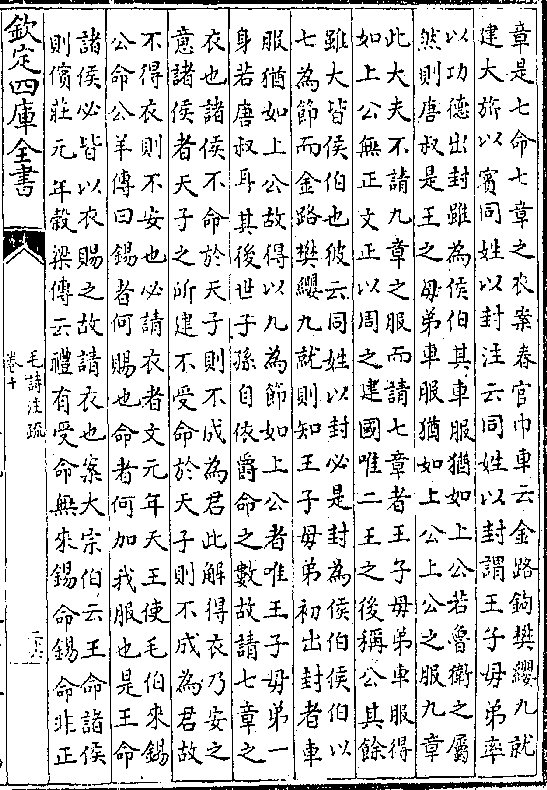 章是七命七章之衣案春官巾車云金路鉤樊纓九就
建大旂以賓同姓以封注云同姓以封謂王子母弟率
以功德出封雖為侯伯其車服猶如上公若魯衛之屬
然則唐叔是王之母弟車服猶如上公上公之服九章
此大夫不請九章之服而請七章者王子母弟車服得
如上公無正文正以周之建國唯二王之後稱公其餘
雖大皆侯伯也彼云同姓以封必是封為侯伯侯伯以
七為節而金路樊纓九就則知王子母弟初出封者車
服猶如上公故得以九為節如上公者唯王子母弟一
身若唐叔耳其後世子孫自依爵命之數故請七章之
衣也諸侯不命於天子則不成為君此解得衣乃安之
意諸侯者天子之所建不受命於天子則不成為君故
不得衣則不安也必請衣者文元年天王使毛伯來錫
公命公羊傳曰錫者何賜也命者何加我服也是王命
諸侯必皆以衣賜之故請衣也案大宗伯云王命諸侯
則儐莊元年穀梁傳云禮有受命無來錫命錫命非正
欽定四庫全書
毛詩注疏
卷十